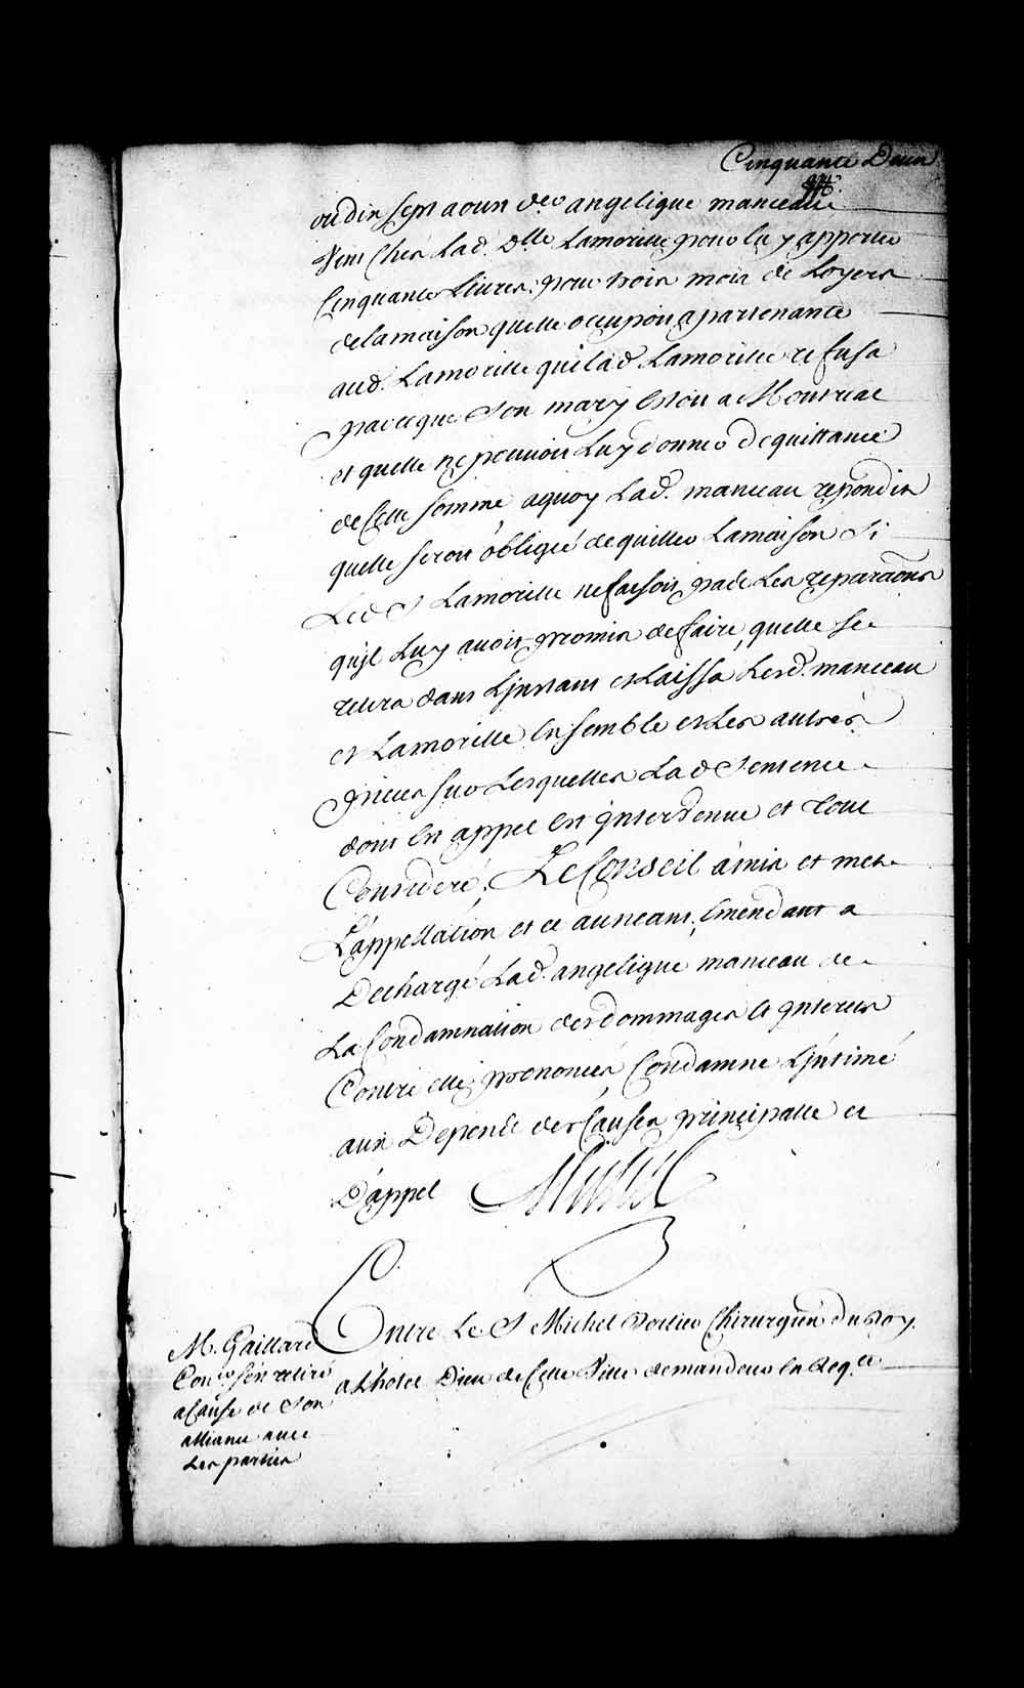 Cinquante Deux
ou dix sept aoust der angelique manceau
Vint Chez Lad. Dlle Lamorille pour luy apporter
Cinquante Livres pour trois mois de Loyers
de la maison quelle occupoit apartenante
aud. Lamorille que lad Lamorille refusa
parceque Son mary Estoit a Montreal
et quelle ne pouvoit Luy donner de quittance
de Cette Somme aquoy Lad. manceau repondit
quelle seroit obligeé de quitter La maison Si
Led Sr Lamorille ne faisoit pas Les reparaõns
quil Luy avoit promis de faire, quelle se
retira dans L'jnstant et Laissa Lesd. manceau
et Lamorille Ensemble et Les autres
pieces sur Lesquelles Lad Sentence
dont En appel Est jntervenue et tout
Consideré; Le Conseil a mis et met
L'appellation et ce au neant, Emendant a
Dechargé Lad. angelique manceau de
La Condamnation des dommages et jnterets
Contre elle prononcés Condamne L'jntimé
aux Depens des Causes principalle et
D'appel
Entre Le Sr Michel Bertier Chirurgien du Roy
a L'hotel Dieu de Cette Ville demandeur En Reqte
M. Gaillard
Conser s'en retiré
a Cause de Son
alliance avec
Les parties